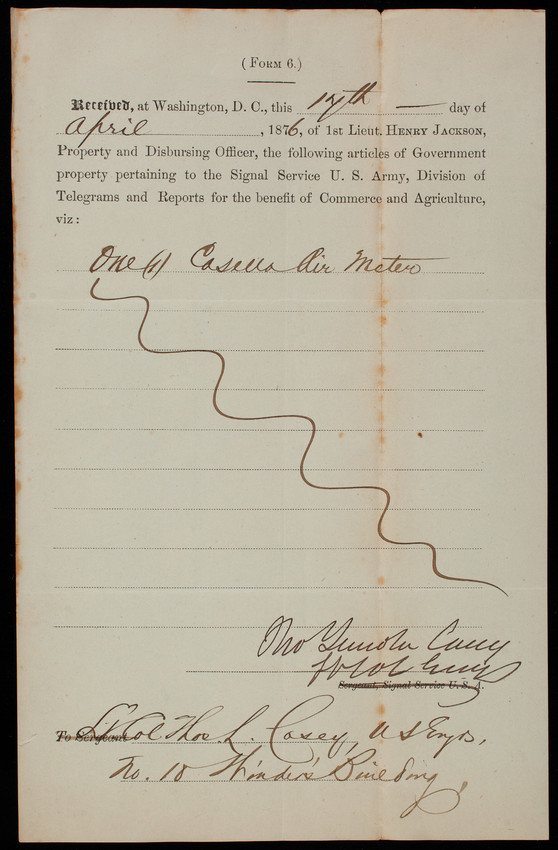 (FORM 6.)
Received, at Washington, D. C., this 17th — day of
April, 1876, of 1st Lieut. HENRY JACKSON,
Property and Disbursing Officer, the following articles of Government
property pertaining to the Signal Service U. S. Army, Division of
Telegrams and Reports for the benefit of Commerce and Agriculture,
viz:
One (1) Casella Air Meter
Thos Lincoln Casey
Lt Col Engrs
Sergeant, Signal Service U. S. A.
To Sergeant Lt Col Thos. L. Casey, U S Engrs,
No. 10 Winder's Building,